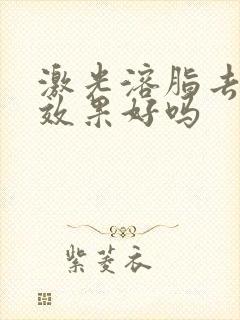 激光溶脂去
效果好吗
紫菱衣